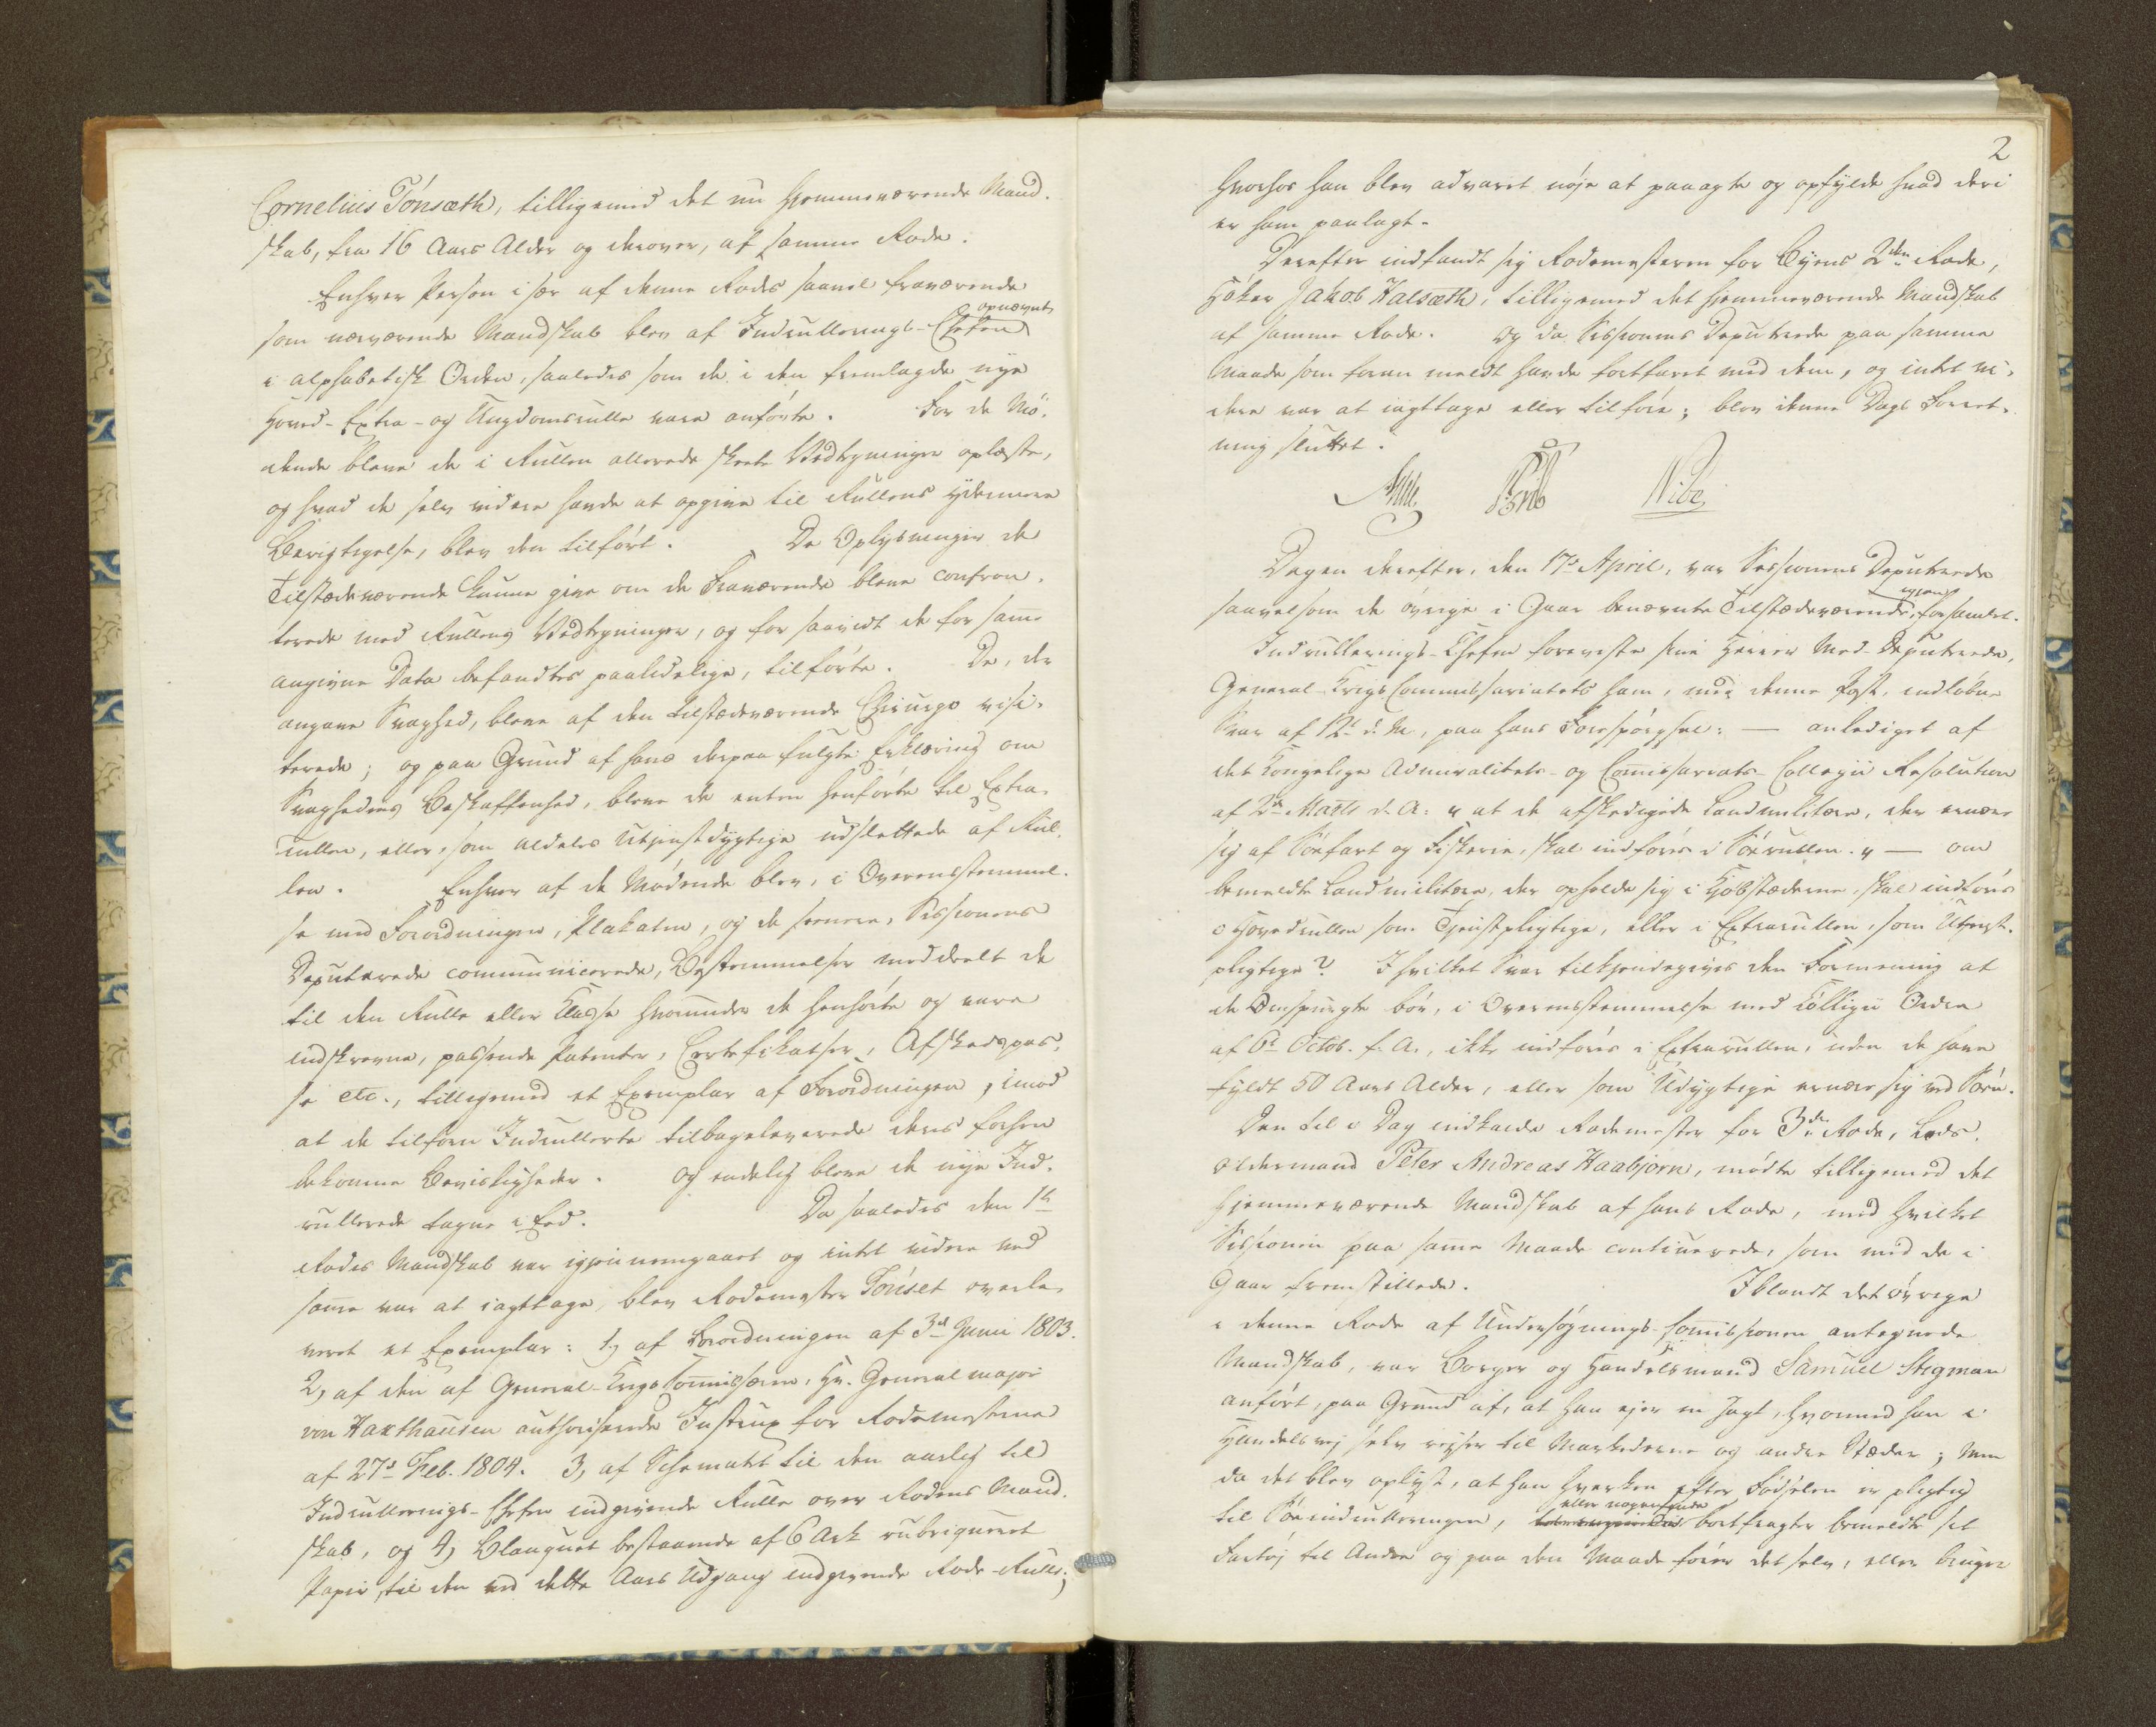 Cornelius Tönsæth, tilligemed det nu hiemmeværende Mand-
skab, fra 16 Aars Alder og derover, af samme Rode.
Enhver Person i sær af denne Rodes saavel fraværende
som nærværende Mandskab blev af Indrullerings-Chefen opnævnt
i alphabetisk Orden, saaledes som de i den fremlagde nye
Hoved- Extra- og Ungdomsrulle vare anförte. For de Mö-
dende bleve de i Rullen allerede skeete Vedtegninger oplæste,
og hvad de selv videre havde at opgive til Rullens ydermere
Berigtigelse, blev den tilfört. De Oplysninger de
Tilstædeværende kunne give om de Fraværende bleve confron-
terede med Rullens Vedtegninger, og for saavidt de for samme
angivne Data befandtes paalidelige, tilförte. De, der
angave Svaghed, bleve af den tilstædeværende Chirurgo visi-
terede; og paa Grund af hans derpaa fulgte Erklæring om
Svaghedens Beskaffenhed, bleve de enten henförte til Extra-
rullen, eller, som aldeles utjenstdygtige udslettede af Rul-
len. Enhver af de Mödende blev, i Overensstemmel-
se med Forordningen, Plakaten, og de senere, Sessionens
Deputerede communicerede, Bestemmelser meddeelt de
til den Rulle eller Klasse hvorunder de henhörte og vare
indskrevne, passende Patenter, Certifikatser, Afskedspas-
se etc., tilligemed et Exemplar af Forordningen, imod
at de tilforn Indrullerte tilbageleverede deres forhen
bekomne Bevisligheder. Og endelig bleve de nye Ind-
rullerede tagne i Eed. Da saaledes den 1ste
Rodes Mandskab var igjennemgaaet og intet videre ved
samme var at iagttage, blev Rodemester Tönset overle-
veret et Exemplar: 1, af Forordningen af 3d Junii 1803.
2, af den af General-Krigs Commissairen, Hr. Generalmajor
von Haxthausen authoriserede Instrux for Rodemesterne
af 27d Feb. 1804. 3, af Schematet til den aarlig til
Indrullerings-Chefen indgivende Rulle over Rodens Mand-
skab, og 4, Blanquet bestaaende af 6 Ark rubriqueret
Papir, til den ved dette Aars Udgang indgivende Rode-Rulle;
2
hvorhos han blev advaret nöje at paaagte og opfylde hvad deri
er ham paalagt.
Derefter indfandt sig Rodemesteren for Byens 2den Rode,
Höker Jakob Halsæth, tilligemed det hjemmeværende Mandskab
af samme Rode. Og da Sessionens Deputerede paa samme
Maade som foran meldt havde fortfaret med dem, og intet vi-
dere var at iagttage eller tilföre; blev denne Dags Forret-
ning sluttet.
Dagen derefter, den 17d April, var Sessionens Deputerede
saavelsom de övrige i Gaar benævnte Tilstædeværende, igjen forsamlet.
Indrullerings-Chefen foreviste sine Herrer Med-Deputerede,
General-Krigs Commissariatets ham, med denne Post, indlöbne
Svar af 12d d. M., paa hans Forespörgsel: — anlediget af
det Kongelige Admiralitets- og Commissariats-Collegii Resolution
af 2d Marts d. A: „ at de afskedigede Landmilitære, der ernære
sig af Söefart og Fiskerie, skal indföres i Söerullen. „ — om
bemeldte Landmilitære, der opholde sig i Kjöbstæderne, skal indföres
i Hovedrullen som Tjenstpligtige, eller i Extrarullen, som Utjenst-
pligtige? I hvilket Svar tilkjendegives den Formening at
de Omspurgte bör, i Overensstemmelse med Collegii Ordre
af 6d Octob. f. A., ikke indföres i Extrarullen, uden de have
fyldt 50 Aars Alder, eller som Udygtige ernære sig ved Söen.
Den til i Dag indkaldte Rodemester for 3die Rode, Lods-
oldermand Peter Andreas Haabjörn, mödte tilligemed det
hjemmeværende Mandskab af hans Rode, med hvilket
Sessionen paa samme Maade continuerede, som med de i
Gaar fremstillede. Iblandt det övrige
i denne Rode af Undersögnings-Commissionen antegnede
Mandskab, var Borger og Handelsmand Samuel Stegman
anfört, paa Grund af, at han ejer en Jagt, hvormed han i
Handelsvej selv rejser til Markederne og andre Stæder; men
da det blev oplyst, at han hverken efter Födselen er pligtig
til Söeindrulleringen, eller bortfragter bemeldte sit
Fartöj til Andre og paa den Maade förer det selv, eller bruger